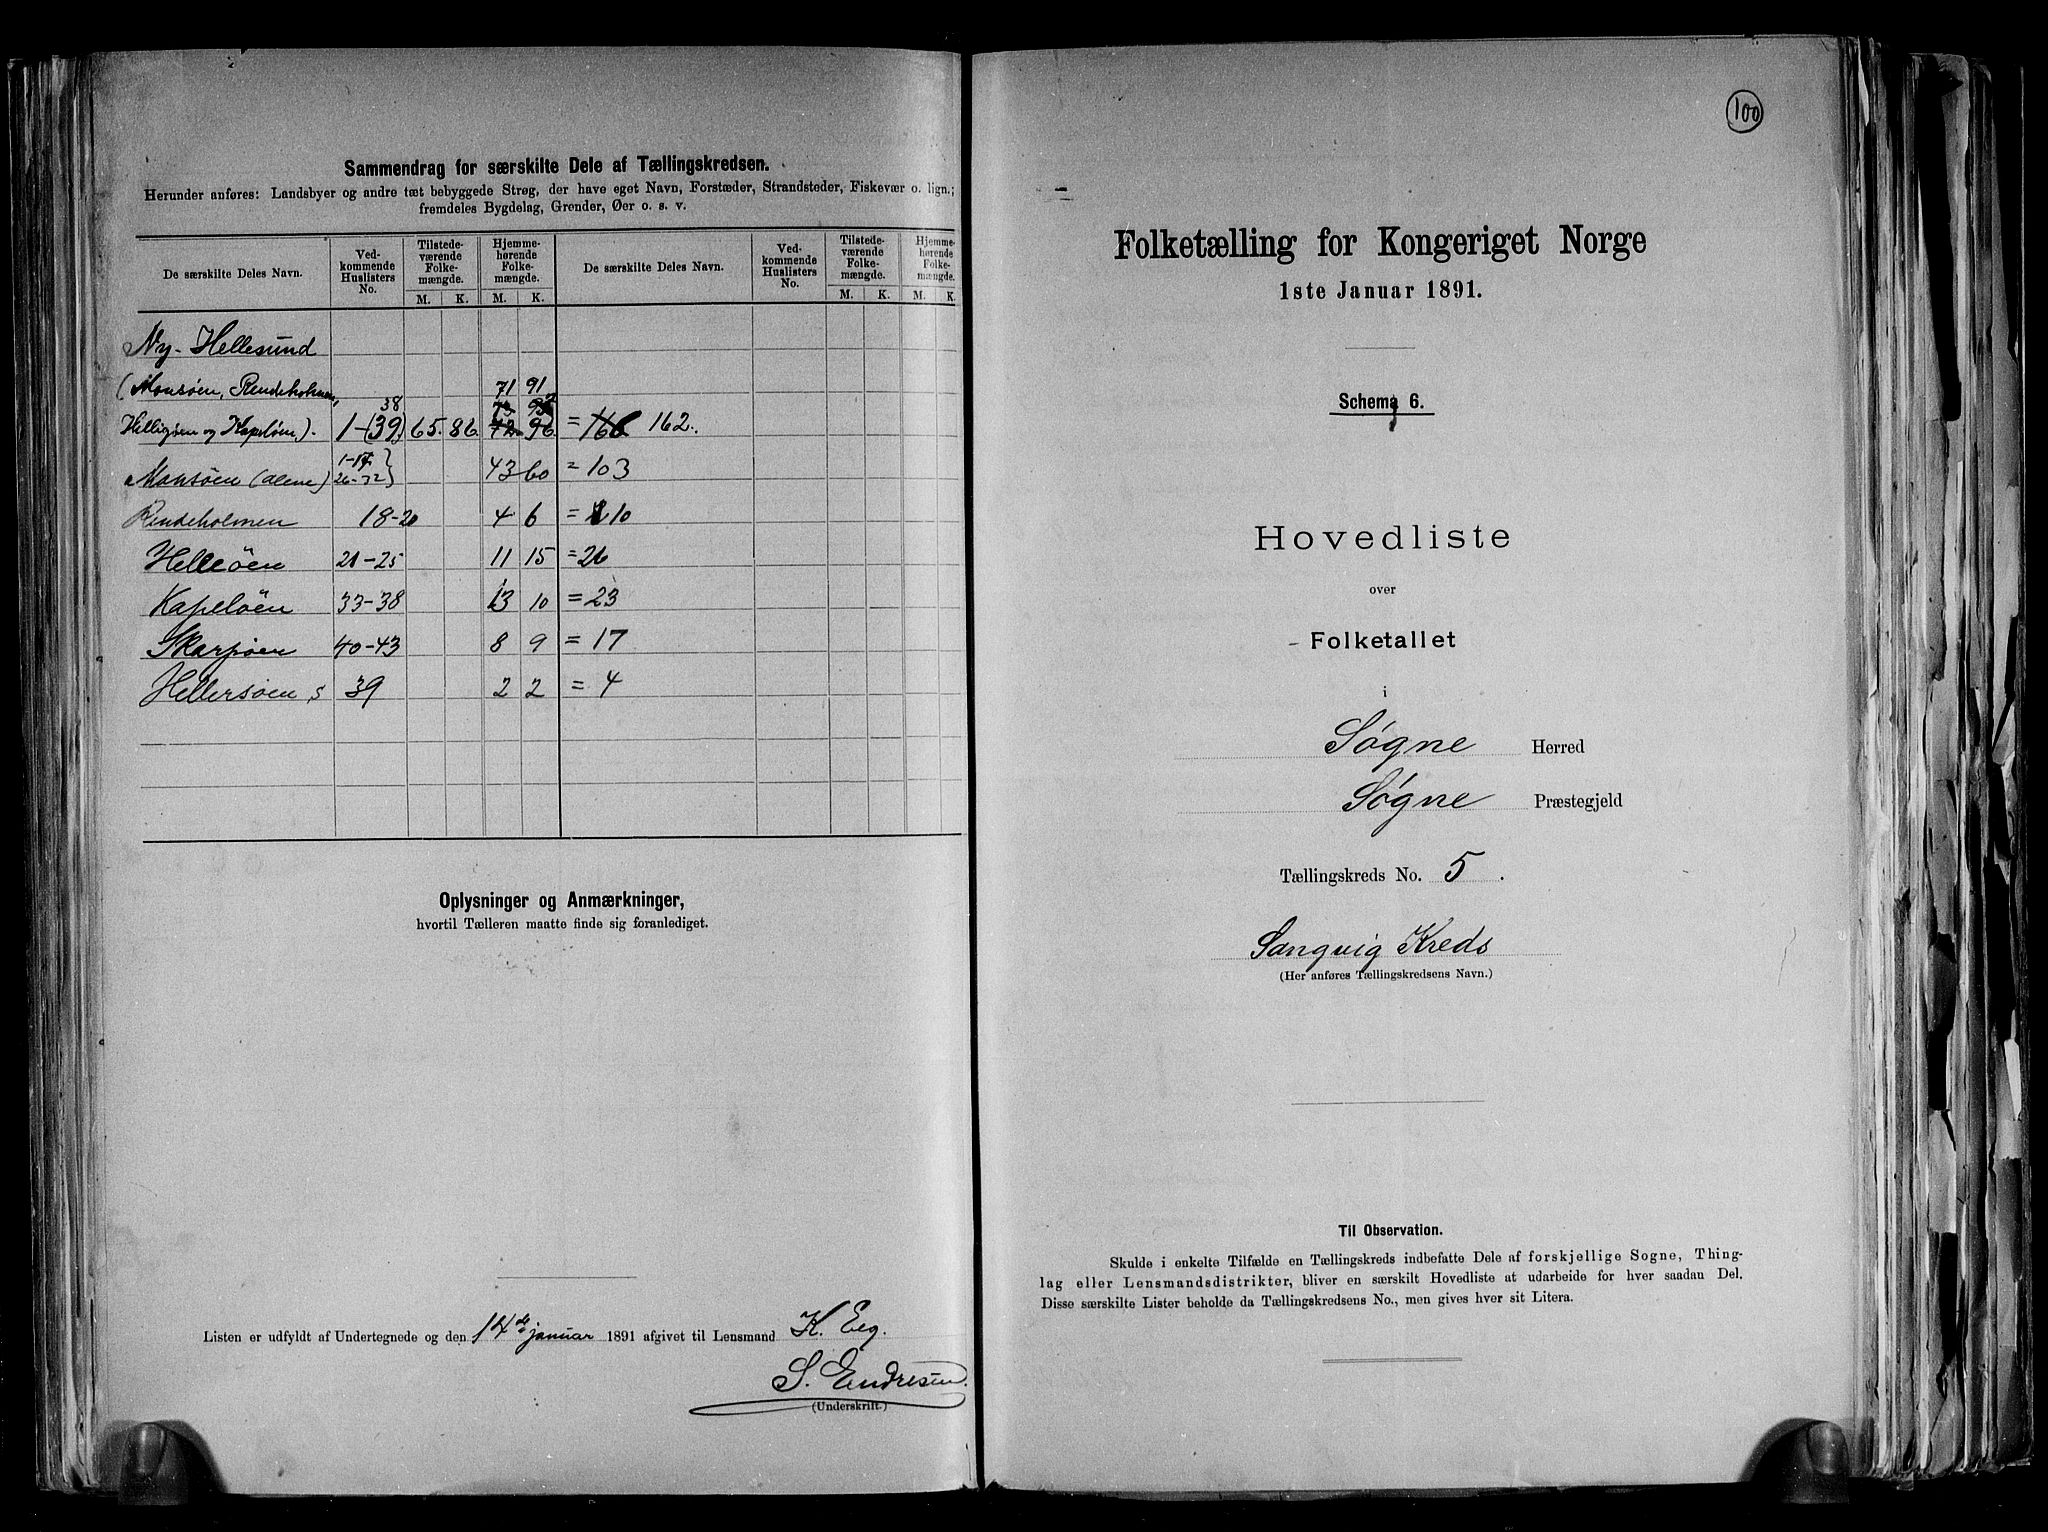 Sammendrag for særskilte Dele af Tællingskredsen.
Herunder anføres: Landsbyer og andre tæt bebyggede Strøg, der have eget Navn, Forstæder, Strandsteder, Fiskevær o. lign.;
fremdeles Bygdelag, Grender, Øer o. s. v.
De særskilte Deles Navn. Ved-kommende Huslisters No. Tilstede-værende Folke-mængde. M. K. Hjemme-hørende Folke-mængde. M. K. De særskilte Deles Navn. Ved-kommende Huslisters No. Tilstede-værende Folke-mængde. M. K. Hjemme-hørende Folke-mængde. M. K.
Ny-Hellesund
(Monsøen, Rendeholmen, 38 71 91
Helligøen og Kapeløen). 1-(39) 65. 86. 72. 96. = 166 162.
Monsøen (alene) 1-17 26-32 } 43 60 = 103
Rendeholmen 18-20 4 6 = 10
Helleøen 21-25 11 15 = 26
Kapeløen 33-38 13 10 = 23
Skarpøen 40-43 8 9 = 17
Hellersøen 39 2 2 = 4
Oplysninger og Anmærkninger,
hvortil Tælleren maatte finde sig foranlediget.
Listen er udfyldt af Undertegnede og den 14de januar 1891 afgivet til Lensmand K. Eeg.
S. Endresen.
(Underskrift.)
100
Folketælling for Kongeriget Norge
1ste Januar 1891.
Schema 6.
Hovedliste
over
Folketallet
i
Søgne Herred
Søgne Præstegjeld
Tællingskreds No. 5.
Sangvig Kreds
(Her anføres Tællingskredsens Navn.)
Til Observation.
Skulde i enkelte Tilfælde en Tællingskreds indbefatte Dele af forskjellige Sogne, Thing-
lag eller Lensmandsdistrikter, bliver en særskilt Hovedliste at udarbeide for hver saadan Del.
Disse særskilte Lister beholde da Tællingskredsens No., men gives hver sit Litera.